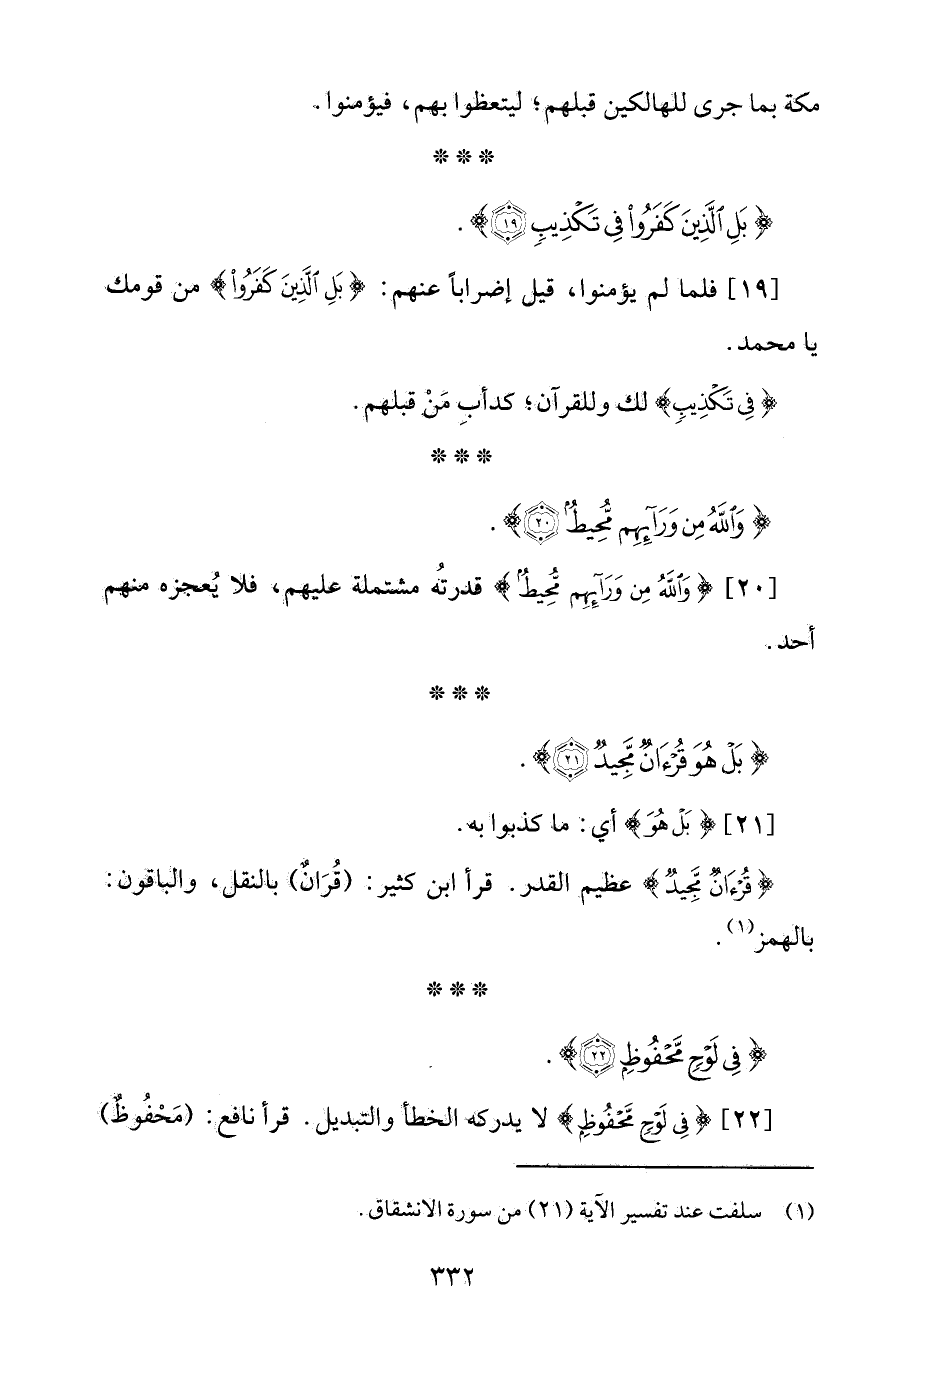 مكة بما جرى للهالكين قبلهم؛ ليتعظوا بهم، فيؤمنوا.
* * *
﴿ بَلِ ٱلَّذِينَ كَفَرُوا۟ فِى تَكْذِيبٍ ١٩ ﴾.
[١٩] فلما لم يؤمنوا، قيل إضراباً عنهم: ﴿ بَلِ ٱلَّذِينَ كَفَرُوا۟ ﴾ من قومك
يا محمد.
﴿ فِى تَكْذِيبٍ ﴾ لك وللقرآن؛ كدأبِ مَنْ قبلهم.
* * *
﴿ وَٱللَّهُ مِن وَرَآئِهِم مُّحِيطٌۢ ٢٠ ﴾.
[٢٠] ﴿ وَٱللَّهُ مِن وَرَآئِهِم مُّحِيطٌۢ ﴾ قدرتُه مشتملة عليهم، فلا يُعجزه منهم
أحد.
* * *
﴿ بَلْ هُوَ قُرْءَانٌ مَّجِيدٌ ٢١ ﴾.
[٢١] ﴿ بَلْ هُوَ ﴾ أي: ما كذبوا به.
﴿ قُرْءَانٌ مَّجِيدٌ ﴾ عظيم القدر. قرأ ابن كثير: (قُرَانٌ) بالنقل، والباقون:
بالهمز(١).
* * *
﴿ فِى لَوْحٍ مَّحْفُوظٍ ٢٢ ﴾.
[٢٢] ﴿ فِى لَوْحٍ مَّحْفُوظٍ ﴾ لا يدركه الخطأ والتبديل. قرأ نافع: (مَحْفُوظٌ)
(١) سلفت عند تفسير الآية (٢١) من سورة الانشقاق.
٣٣٢